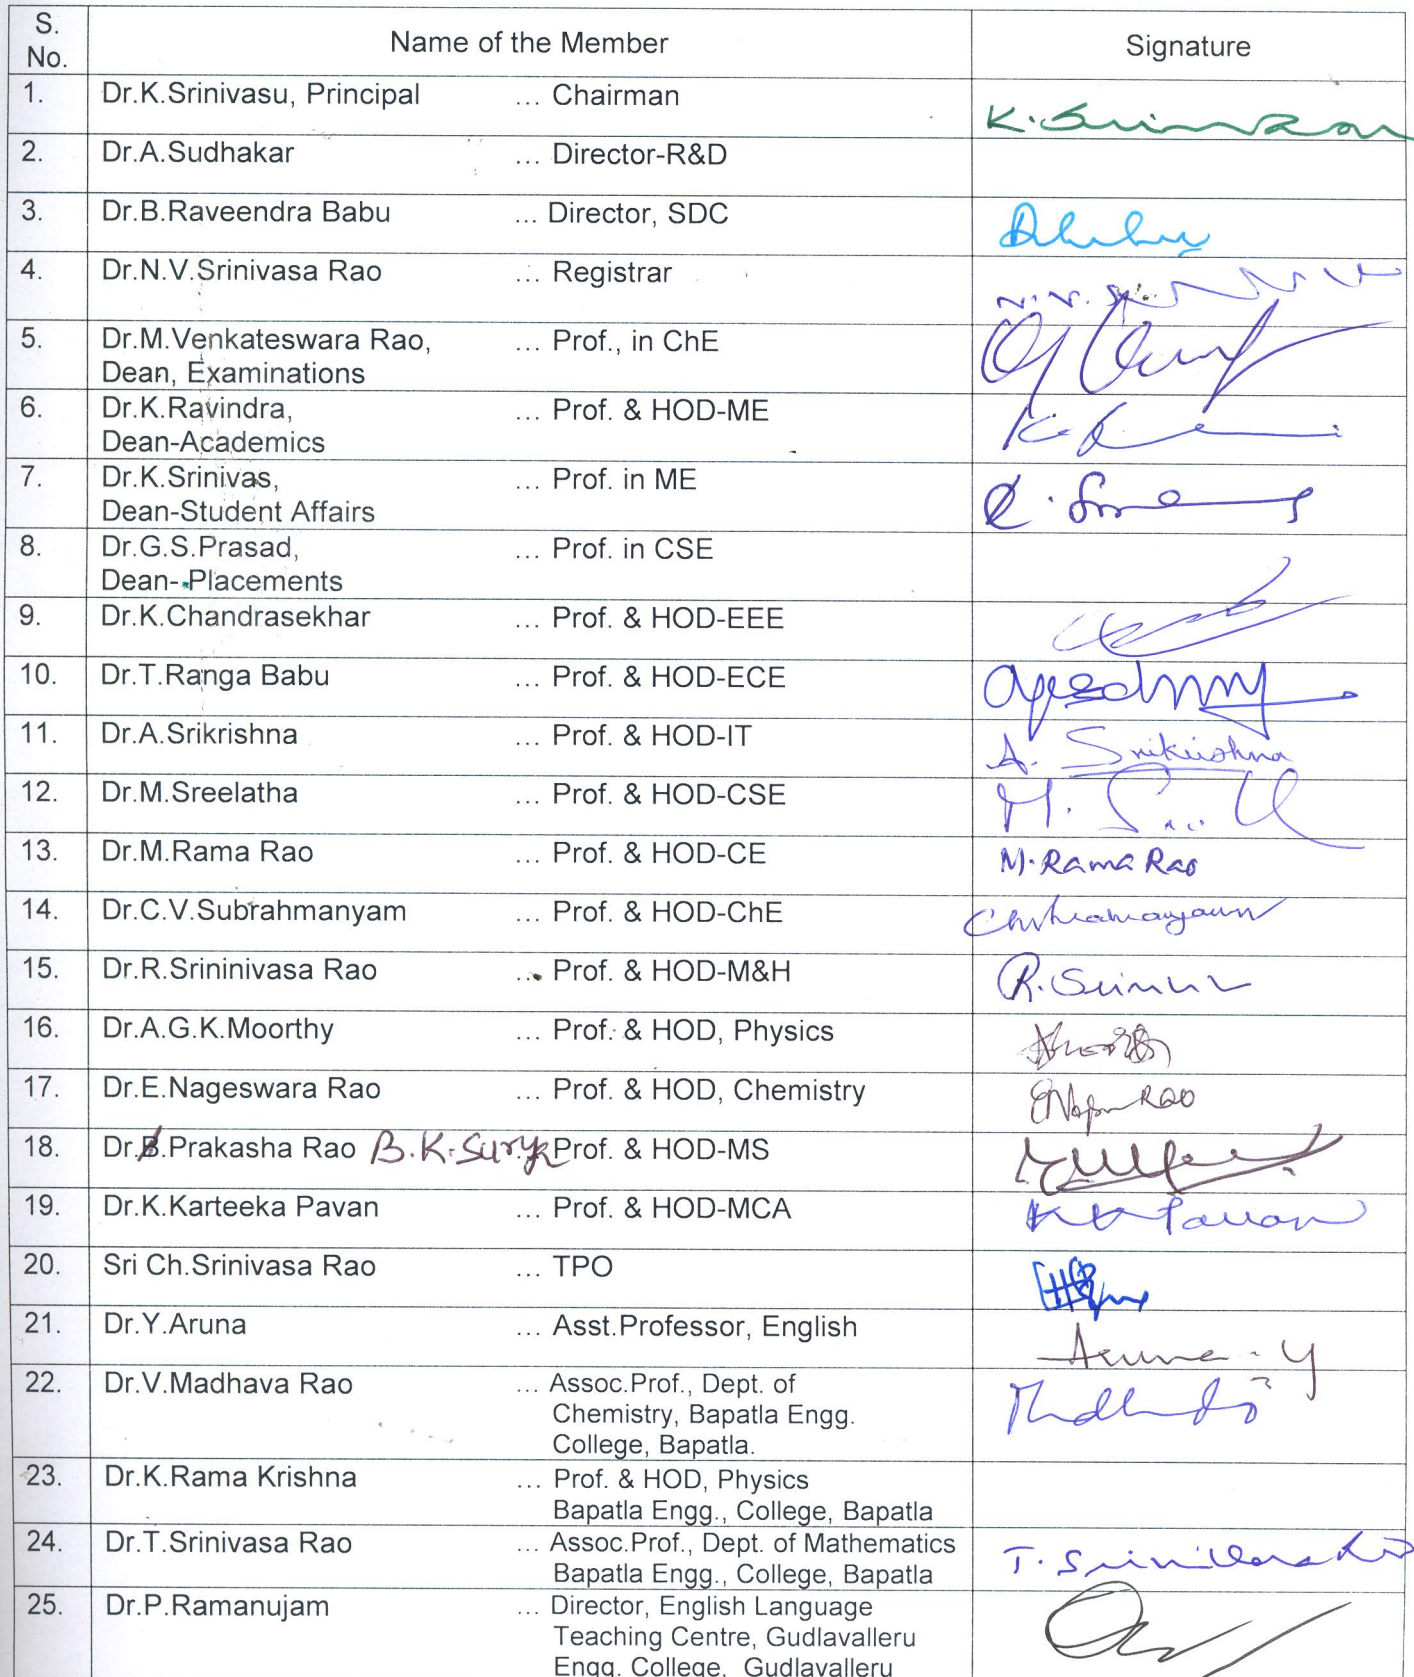 S. No. Name of the Member Signature
1. Dr.K.Srinivasu, Principal ... Chairman
2. Dr.A.Sudhakar ... Director-R&D
3. Dr.B.Raveendra Babu ... Director, SDC
4. Dr.N.V.Srinivasa Rao ... Registrar
5. Dr.M.Venkateswara Rao, ... Prof., in ChE
Dean, Examinations
6. Dr.K.Ravindra, ... Prof. & HOD-ME
Dean-Academics
7. Dr.K.Srinivas, ... Prof. in ME
Dean-Student Affairs
8. Dr.G.S.Prasad, ... Prof. in CSE
Dean- Placements
9. Dr.K.Chandrasekhar ... Prof. & HOD-EEE
10. Dr.T.Ranga Babu ... Prof. & HOD-ECE
11. Dr.A.Srikrishna ... Prof. & HOD-IT A. Srikrishna
12. Dr.M.Sreelatha ... Prof. & HOD-CSE
13. Dr.M.Rama Rao ... Prof. & HOD-CE M.Rama Rao
14. Dr.C.V.Subrahmanyam ... Prof. & HOD-ChE
15. Dr.R.Srininivasa Rao ... Prof. & HOD-M&H
16. Dr.A.G.K.Moorthy ... Prof. & HOD, Physics
17. Dr.E.Nageswara Rao ... Prof. & HOD, Chemistry
18. Dr.B.Prakasha Rao B.K.Surya Prof. & HOD-MS
19. Dr.K.Karteeka Pavan ... Prof. & HOD-MCA K K Pavan
20. Sri Ch.Srinivasa Rao ... TPO
21. Dr.Y.Aruna ... Asst.Professor, English Aruna. Y
22. Dr.V.Madhava Rao ... Assoc.Prof., Dept. of
Chemistry, Bapatla Engg.
College, Bapatla.
23. Dr.K.Rama Krishna ... Prof. & HOD, Physics
Bapatla Engg., College, Bapatla
24. Dr.T.Srinivasa Rao ... Assoc.Prof., Dept. of Mathematics
Bapatla Engg., College, Bapatla
25. Dr.P.Ramanujam ... Director, English Language
Teaching Centre, Gudlavalleru
Engg. College, Gudlavalleru